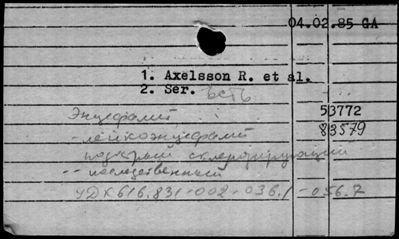 04.02.85 GA
1. Axelsson R. et al.
2. Ser. есть
Энцефалит 53772
- лейкоэнцефалит 83579
подострый склерозирующий
-- наследственный
УДК 616.831-002-036.1-056.7